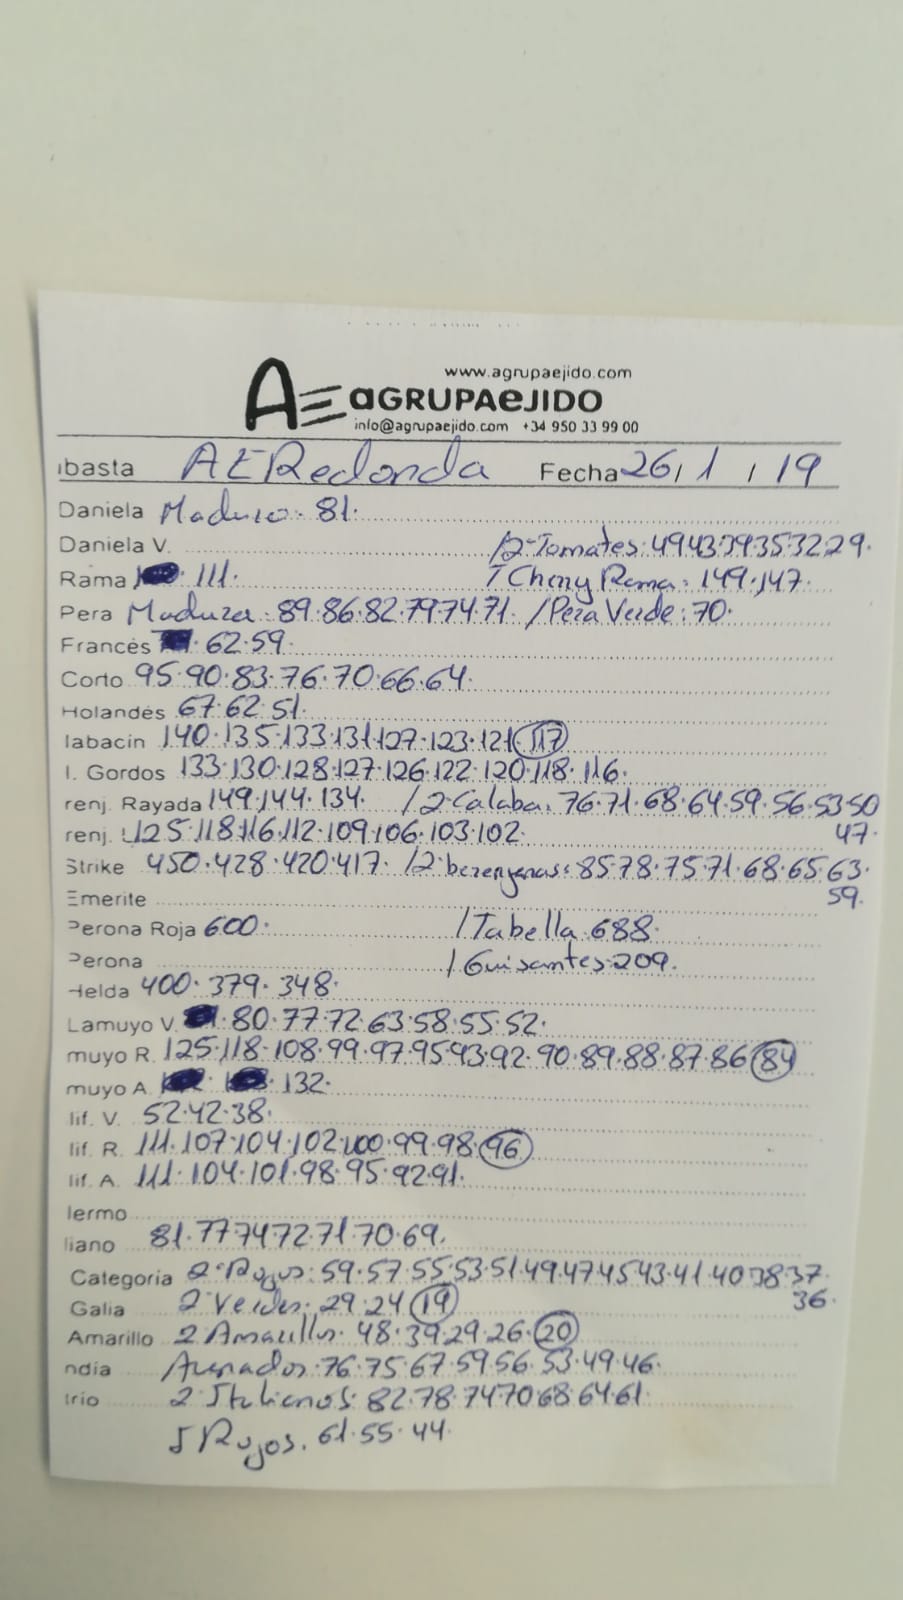 www.agrupaejido.com
AE aGRUPAeJIDO
info@agrupaejido.com +34 950 33 99 00
ubasta AE Redonda Fecha 26/1/19
Daniela Maduro. 81.
Daniela V. /2ºTomates: 49.43.39.35.32.29.
Rama 111. T Cherry Rama: 149.147.
Pera Madura: 89.86.82.79.74.71. /Pera Verde: 70.
Francés 62.59.
Corto 95.90.83.76.70.66.64.
Holandés 67.62.51.
labacín 140.135.133.131.127.123.121.117
l. Gordos 133.130.128.127.126.122.120.118.116.
renj. Rayada 149.144.134. /2ºCalaba: 76.71.68.64.59.56.53.50
renj. L 125.118.116.112.109.106.103.102. 47.
Strike 450.428.420.417. /2ºberenjenas: 85.78.75.71.68.65.63.
Emerite 59.
Perona Roja 600. /Tabella 688.
Perona /Guisantes 209.
Helda 400.379.348.
Lamuyo V. 80.77.72.63.58.55.52.
muyo R. 125.118.108.99.97.95.93.92.90.89.88.87.86 84
muyo A 132.
lif. V. 52.42.38.
lif. R. 111.107.104.102.100.99.98.96
lif. A. 111.104.101.98.95.92.91.
lermo
liano 81.77.74.72.71.70.69.
Categoría 2ºRojos: 59.57.55.53.51.49.47.45.43.41.40.38.37.
36.
Galia 2ºVerdes: 29.24.19
Amarillo 2ºAmarillos: 48.39.29.26.20
ndia Asurados: 76.75.67.59.56.53.49.46.
lrio 2ºItalianos: 82.78.74.70.68.64.61.
J Rojos. 61.55.44.